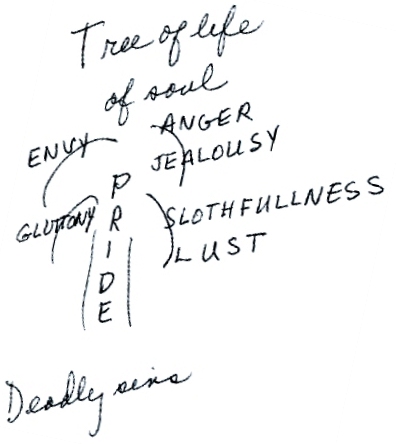 Tree of life
of soul
ANGER
ENVY
JEALOUSY
GLUTTONY
SLOTHFULLNESS
LUST
PRIDE
Deadly sins